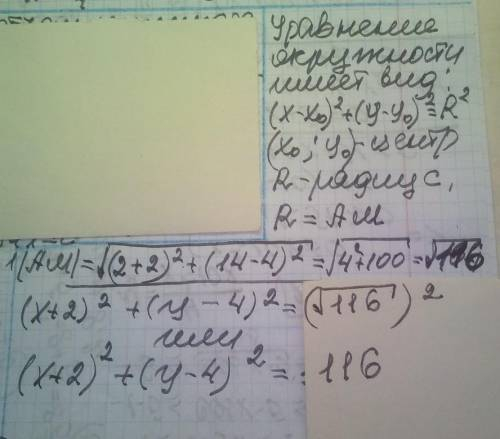 Уравнение
окружности
имеет вид:
(x-x₀)²+(y-y₀)²=R²
(x₀; y₀)-центр
R-радиус,
R=AM
|AM|=√((2+2)²+(14-4)²)=√(4²+100)=√116
(x+2)²+(y-4)²=(√116)²
или
(x+2)²+(y-4)²=116